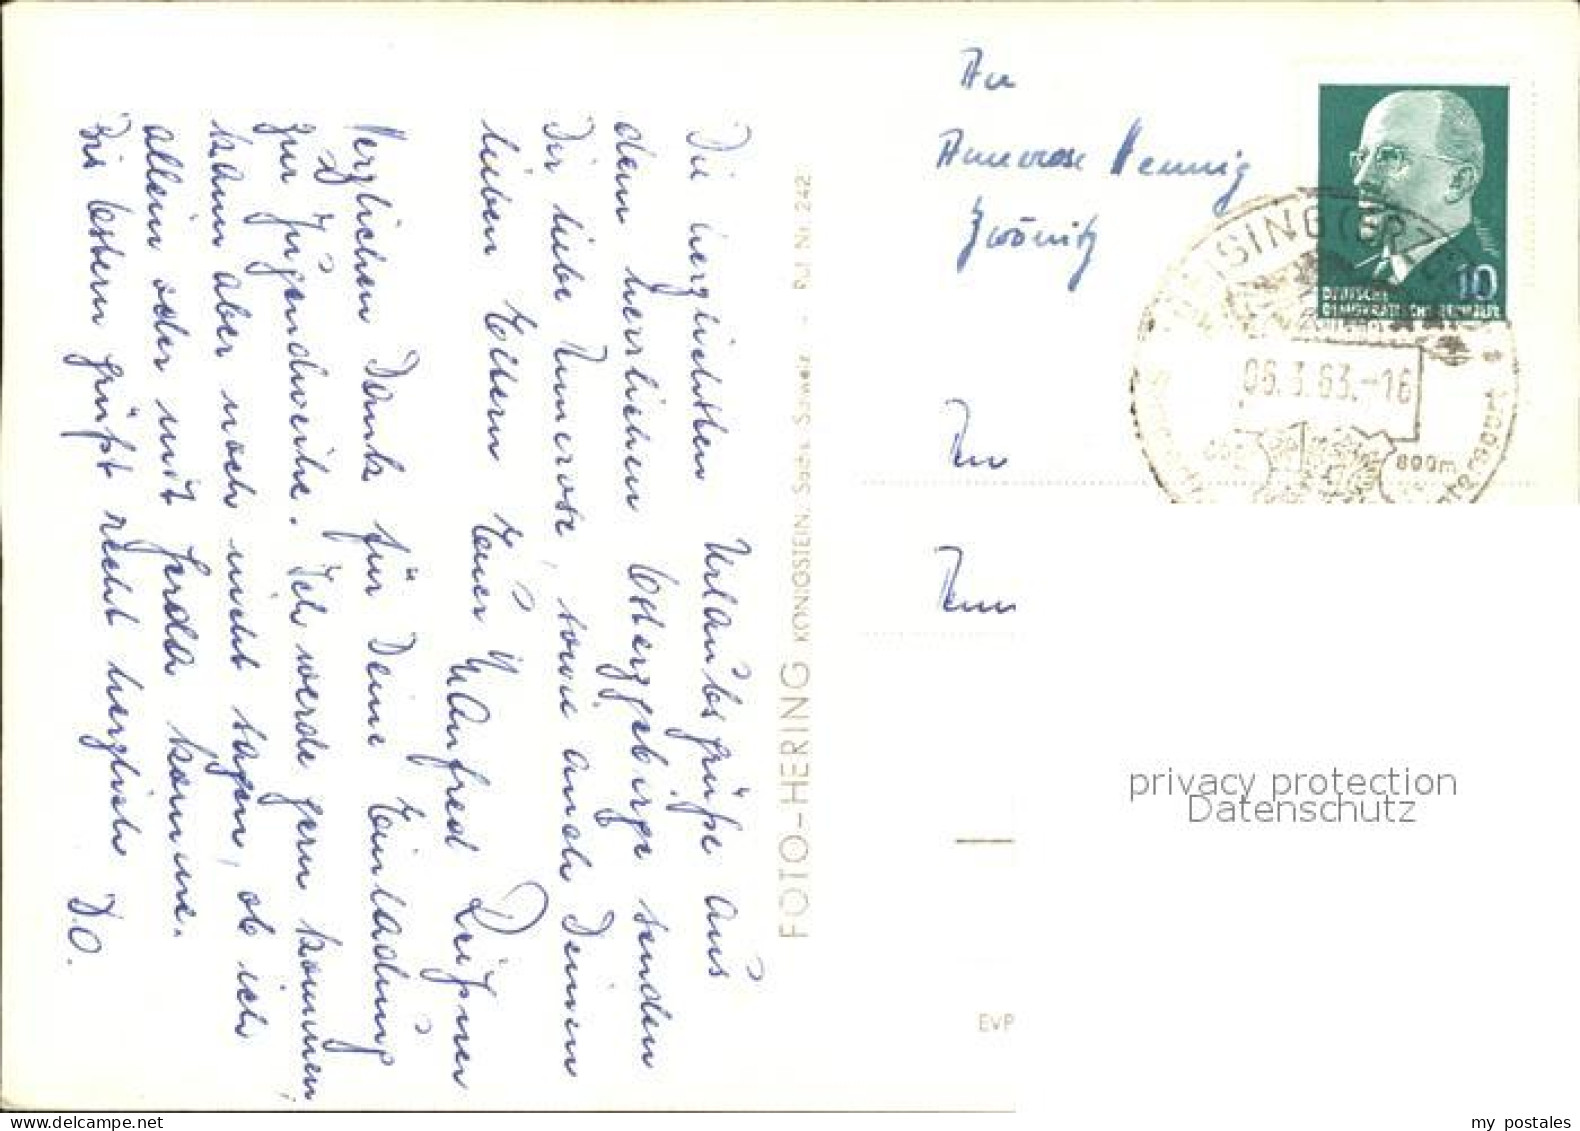 Die herzlichsten Urlaubsgrüße aus
dem herrlichen Osterzgebirge senden
Dir liebe Annerose, sowie auch Deinen
lieben Eltern Euer Manfred
Herzlichen Dank für Deine Einladung
zur Jugendweihe. Ich werde gern kommen,
kann aber noch nicht sagen, ob ich
allein oder mit Gerda komme.
Bis Ostern grüßt recht herzlich D.O.
FOTO-HERING KÖNIGSTEIN, Sächs. Schweiz - Nr. 242
An
Annerose Hennig
Zwönitz
10
DEUTSCHE
DEMOKRATISCHE REPUBLIK
SING (ERZ
06.3.63.-16
800m
Wintersport
EVP
privacy protection
Datenschutz
my postales